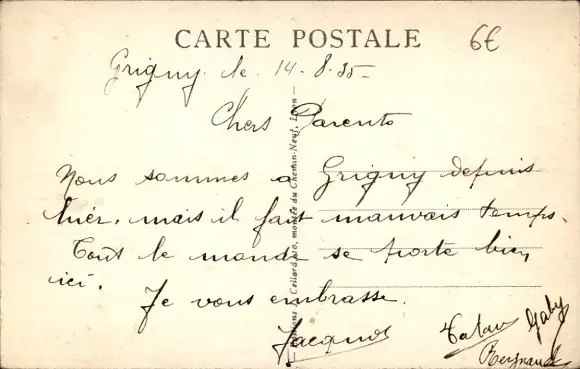 CARTE POSTALE
6€
Grigny le 14-8-35-
Chers Parents
Nous sommes a Grigny depuis
hier, mais il fait mauvais temps.
Tout le monde se porte bien
ici.
Je vous embrasse.
Jacquot
Gaby
Cellard, montée du Chemin-Neuf, Lyon